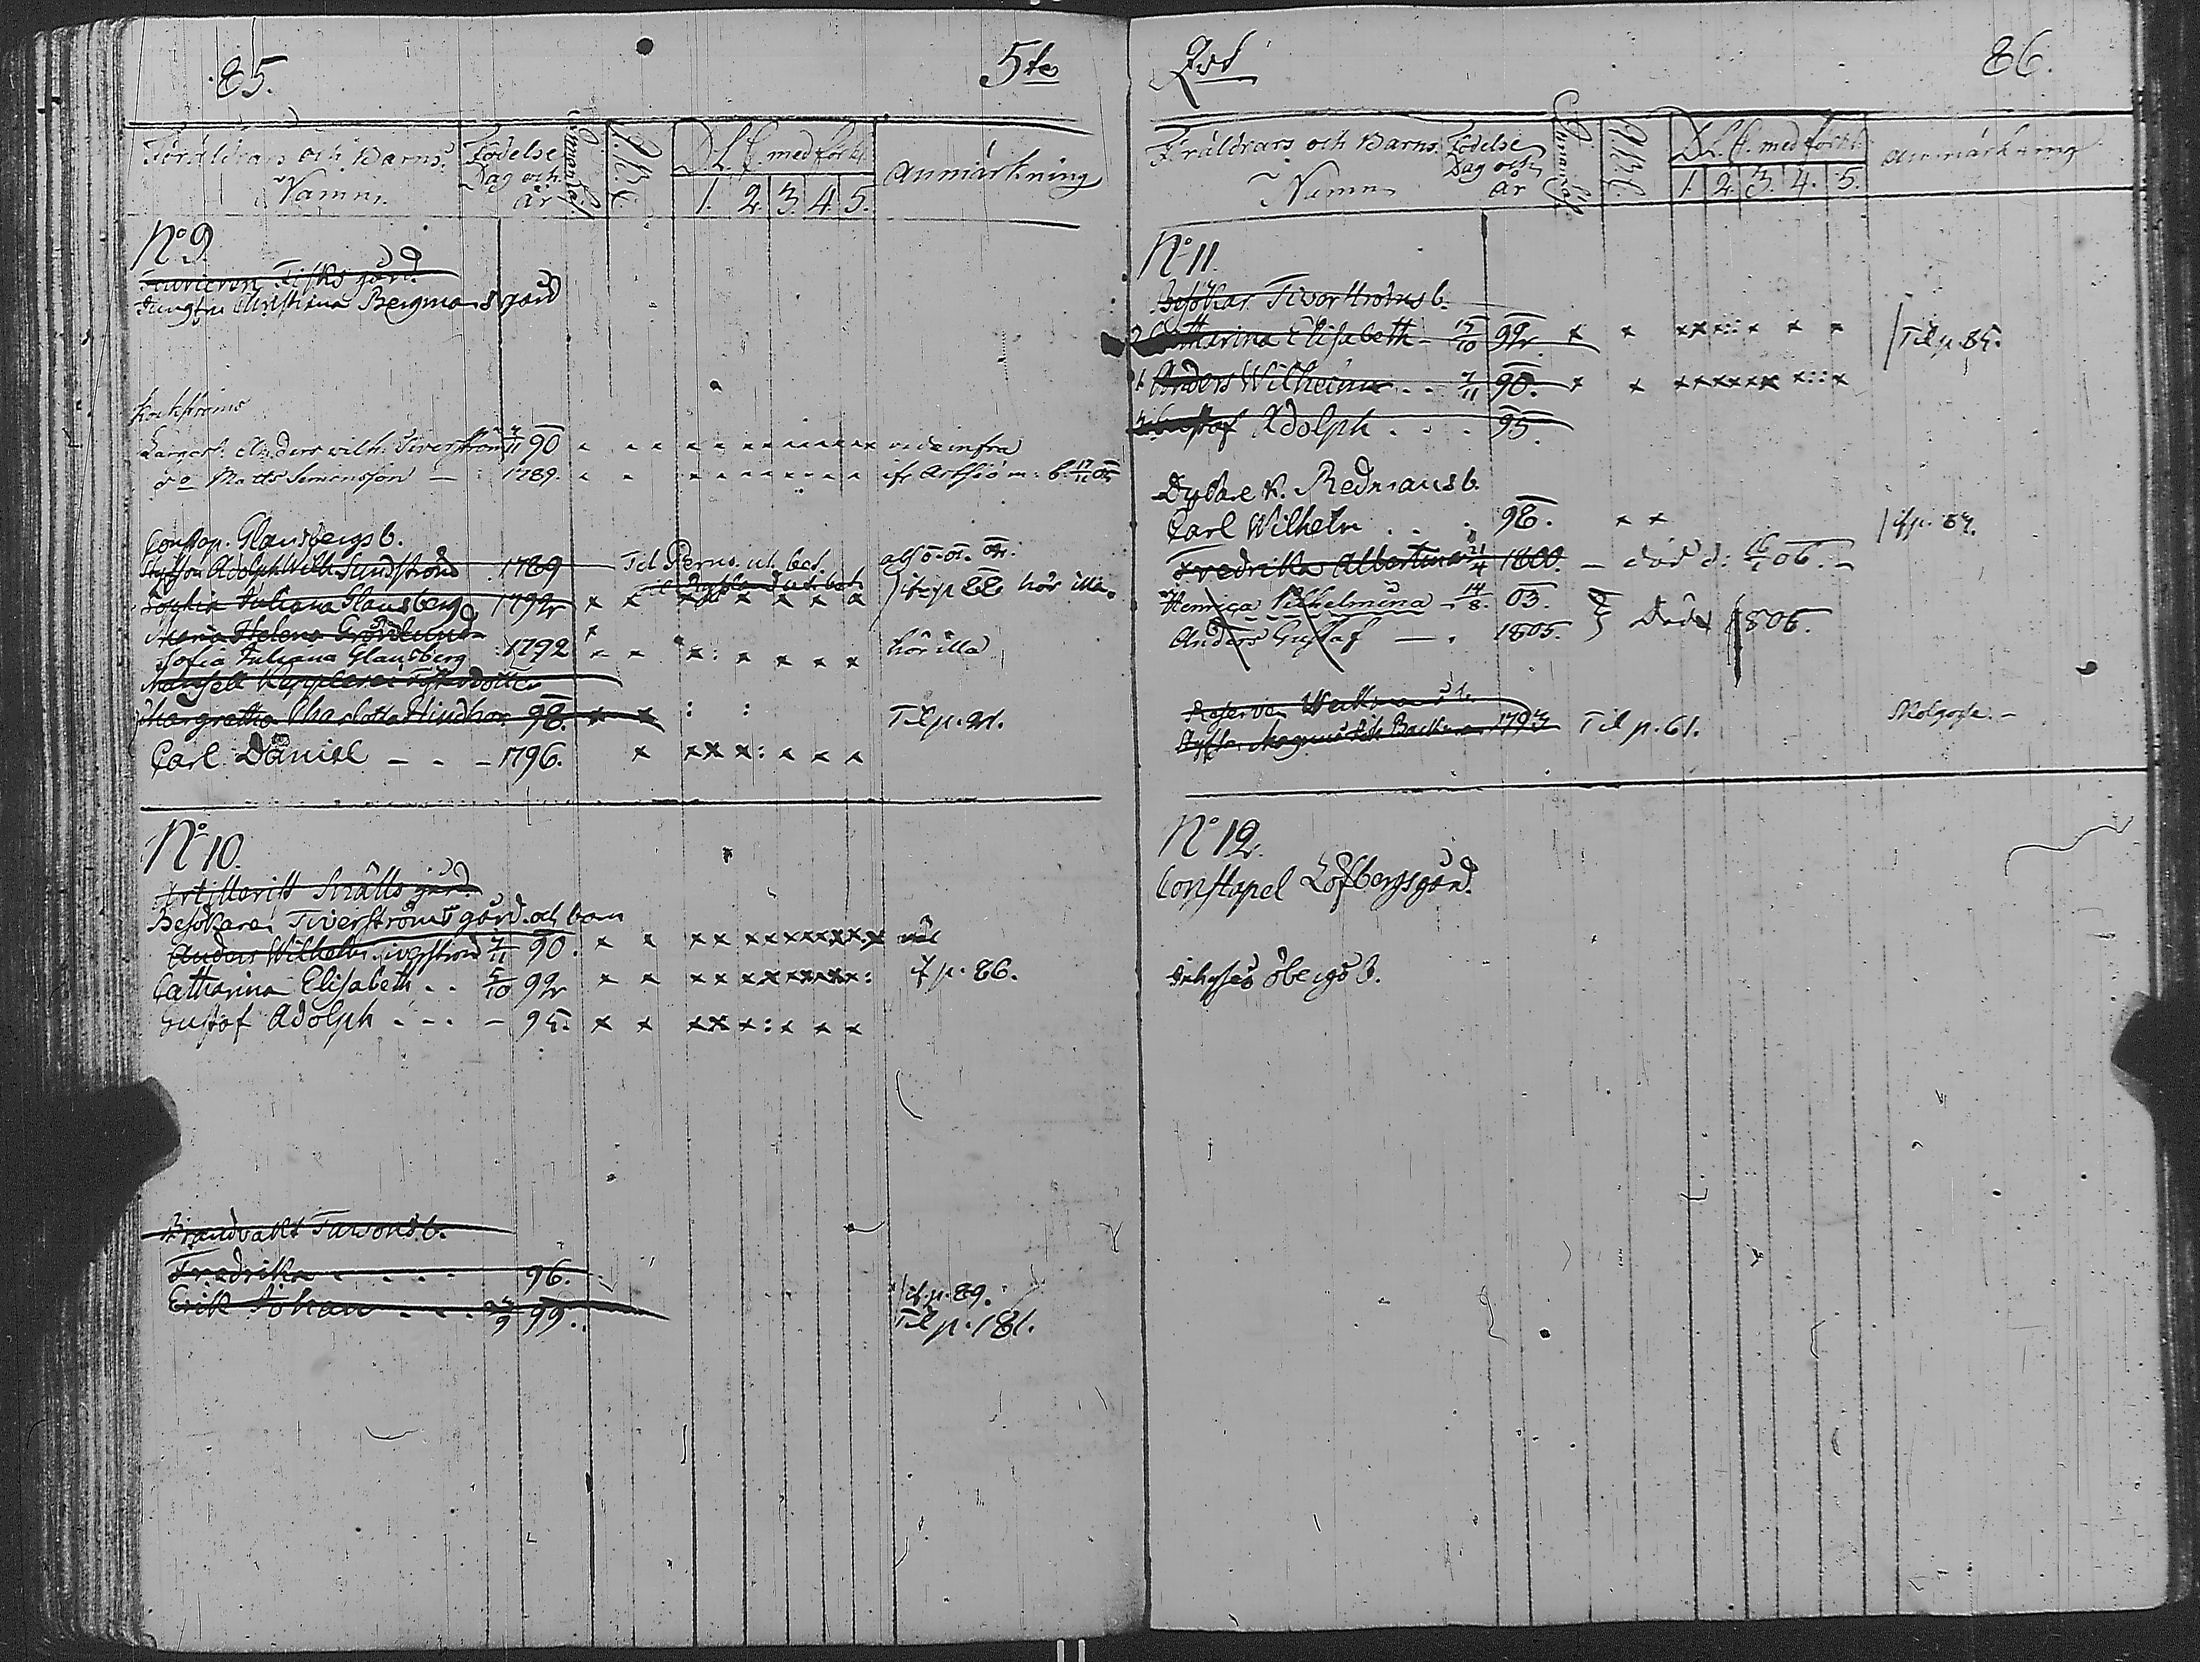 85.
5te
Föräldrars och Barns
Namn.
Födelse
Dag och
år
D.L.C. med förkl.
1. 2. 3. 4. 5.
Anmärkning
No 9.
Fisks gård
Jungfru Christina Bergmans gård
Anders Wilh. Tiverström 7/11 90 vide infra
do Matts Simonsson — 1789.
Constap. Glansbergs b.
Adolph Wilh. Sundström 1789 Til Perno ut. bet.
Sophia Juliana Glansberg 1792 p. 88 hör illa
Maria Helena Grönlund
Sofia Juliana Glansberg 1792 hör illa
Margretha Charlotta Lindbo 98. Til p. 21.
Carl Daniel - - - 1796.
No 10.
Artillerist Snälls gård
Besökare Tiverströms gård och barn
Anders Wilhelm Tiverström 7/11 90.
Catharina Elisabeth . . 5/10 92 p. 86.
Gustaf Adolph . - . - 95.
Brandvakt b.
Fredrika - . . . . 96. p. 89.
Erik Johan . . . . 99. Til p. 181.
Qrt
86.
Föräldrars och Barns
Namn
Födelse
Dag och
år
D.L.C. med förkl.
1. 2. 3. 4. 5.
Anmärkning
No 11.
Besökar Tiverströms b.
2 Catharina Elisabeth - 5/10 92. Til p. 85.
1. Anders Wilhelm . . 7/11 90.
3. Gustaf Adolph . . . 95.
Dykare N. Redmans b.
Carl Wilhelm . . . 98. p. 87.
Fredrika Albertina 21/4 1800. — död d: 16/1 06.
Henrica Vilhelmina - 14/8. 03.
Anders Gustaf — . 1805. } Döde 1806.
b.
Magnus Backman 1793 Til p. 61.
No 12.
Constapel Löfbergs gård.
Öbergs b.